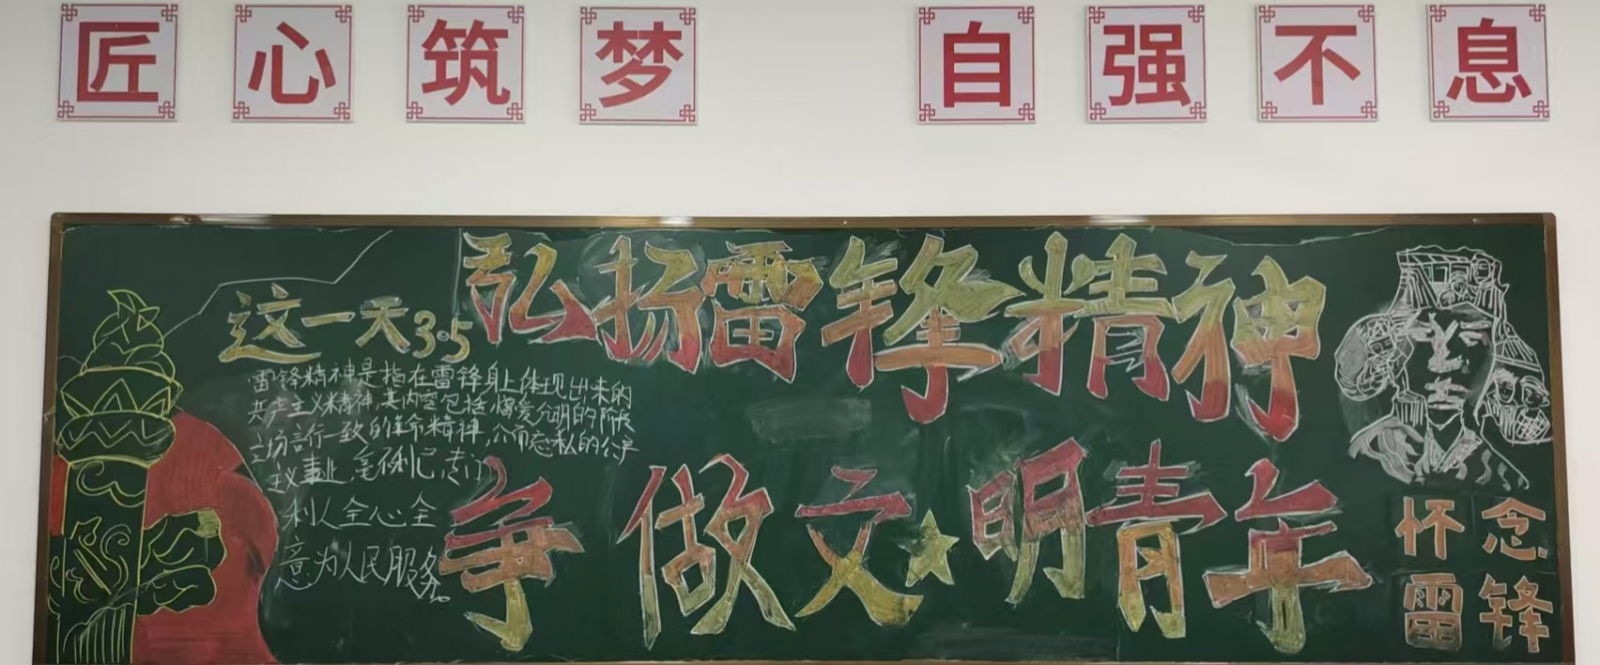 匠心筑梦 自强不息
弘扬雷锋精神
争做文明青年
这一天3.5
雷锋精神是指在雷锋身上体现出来的
共产主义精神,其内容包括,憎爱分明的阶段
立场言行一致的革命精神,公而忘私的公
义事业,毫利己专门
利人全心全
意为人民服务。
怀念
雷锋